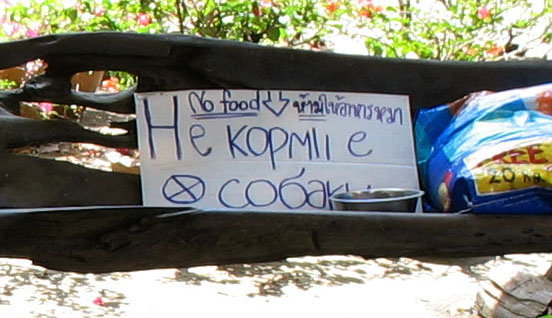 No food ห้ามให้อาหารหมา
Не кормıı е
собак
FREE
20 kg